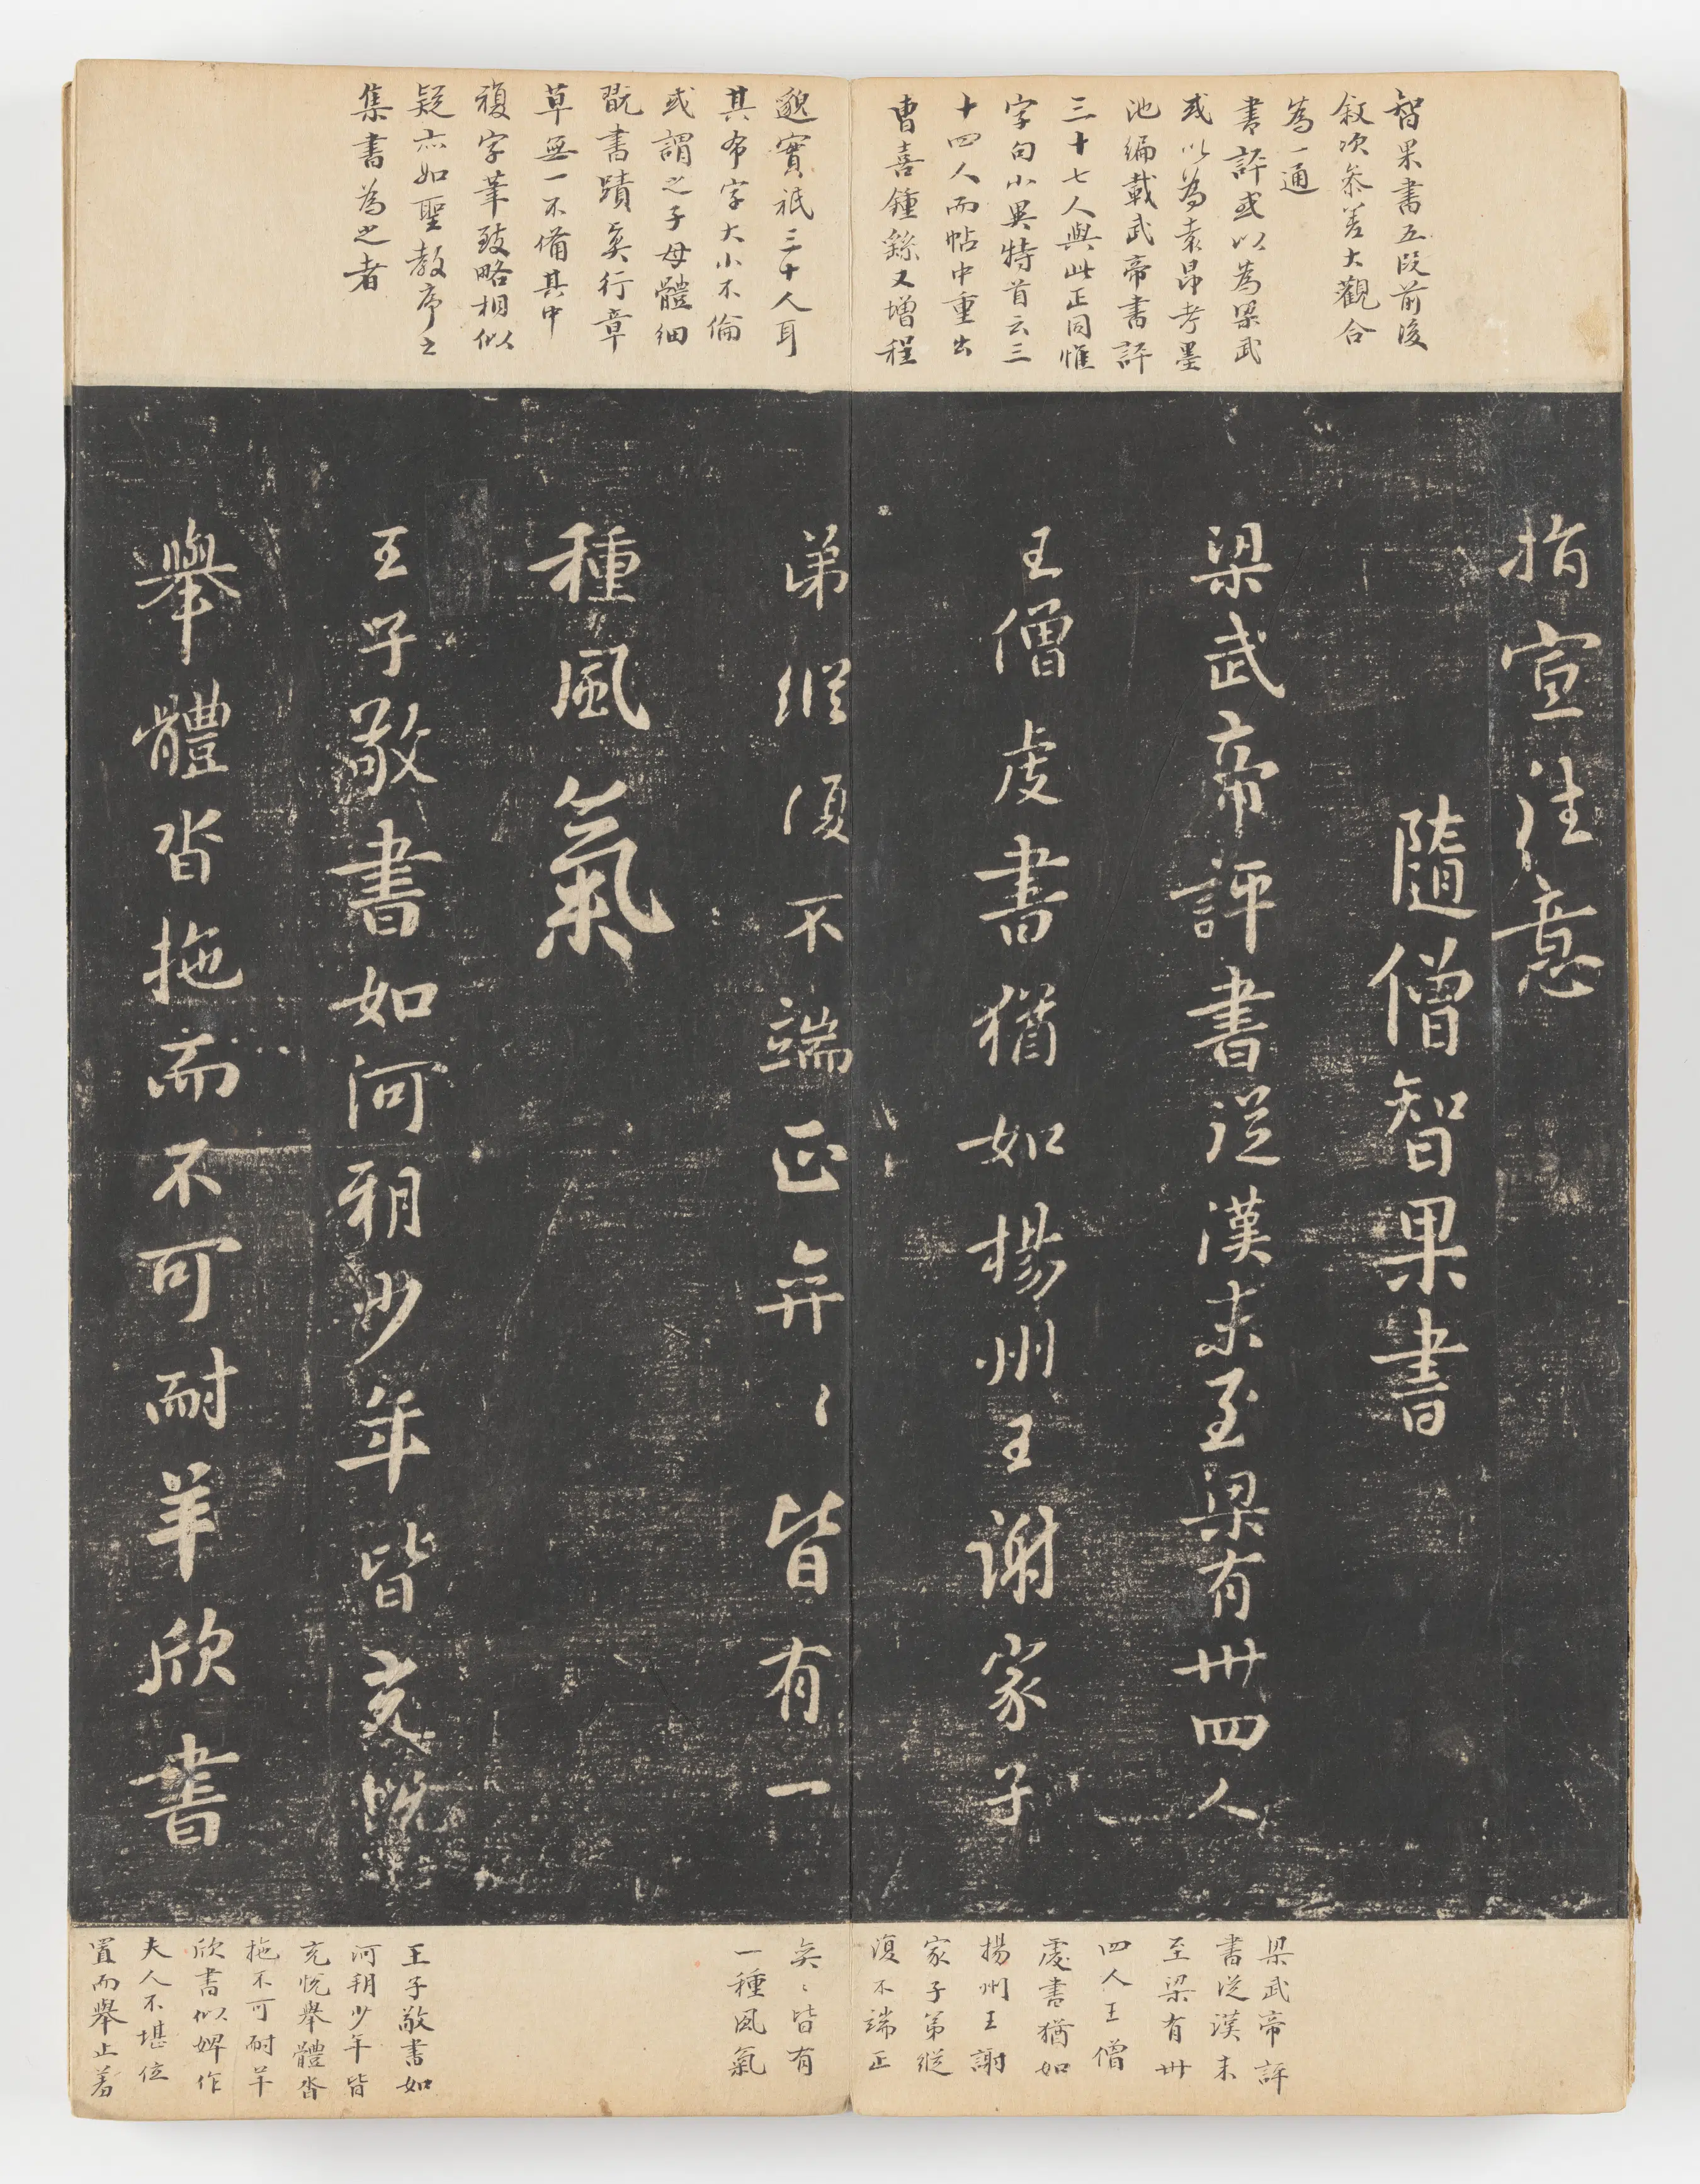 智果書五段前後
敍次參差大觀合
為一通
書評或以為梁武
或以為袁昂考墨
池編載武帝書評
三十七人與此正同惟
字句小異特首云三
十四人而帖中重出
曹喜鍾繇又增程
邈實祇三十人耳
其布字大小不倫
或謂之子母體細
翫書蹟矣行章
草無一不備其中
複字筆致略相似
疑亦如聖教序之
集書為之者
指宣注意
隨僧智果書
梁武帝評書從漢末至梁有卅四人
王僧虔書猶如揚州王謝家子
弟縱須不端正弈〻皆有一
種風氣
王子敬書如河朔少年皆充悅
舉體沓拖而不可耐羊欣書
梁武帝評
書從漢末
至梁有卅
四人王僧
虔書猶如
揚州王謝
家子弟縱
復不端正
矣〻皆有
一種風氣
王子敬書如
河朔少年皆
充悅舉體沓
拖不可耐羊
欣書似婢作
夫人不堪位
置而舉止羞